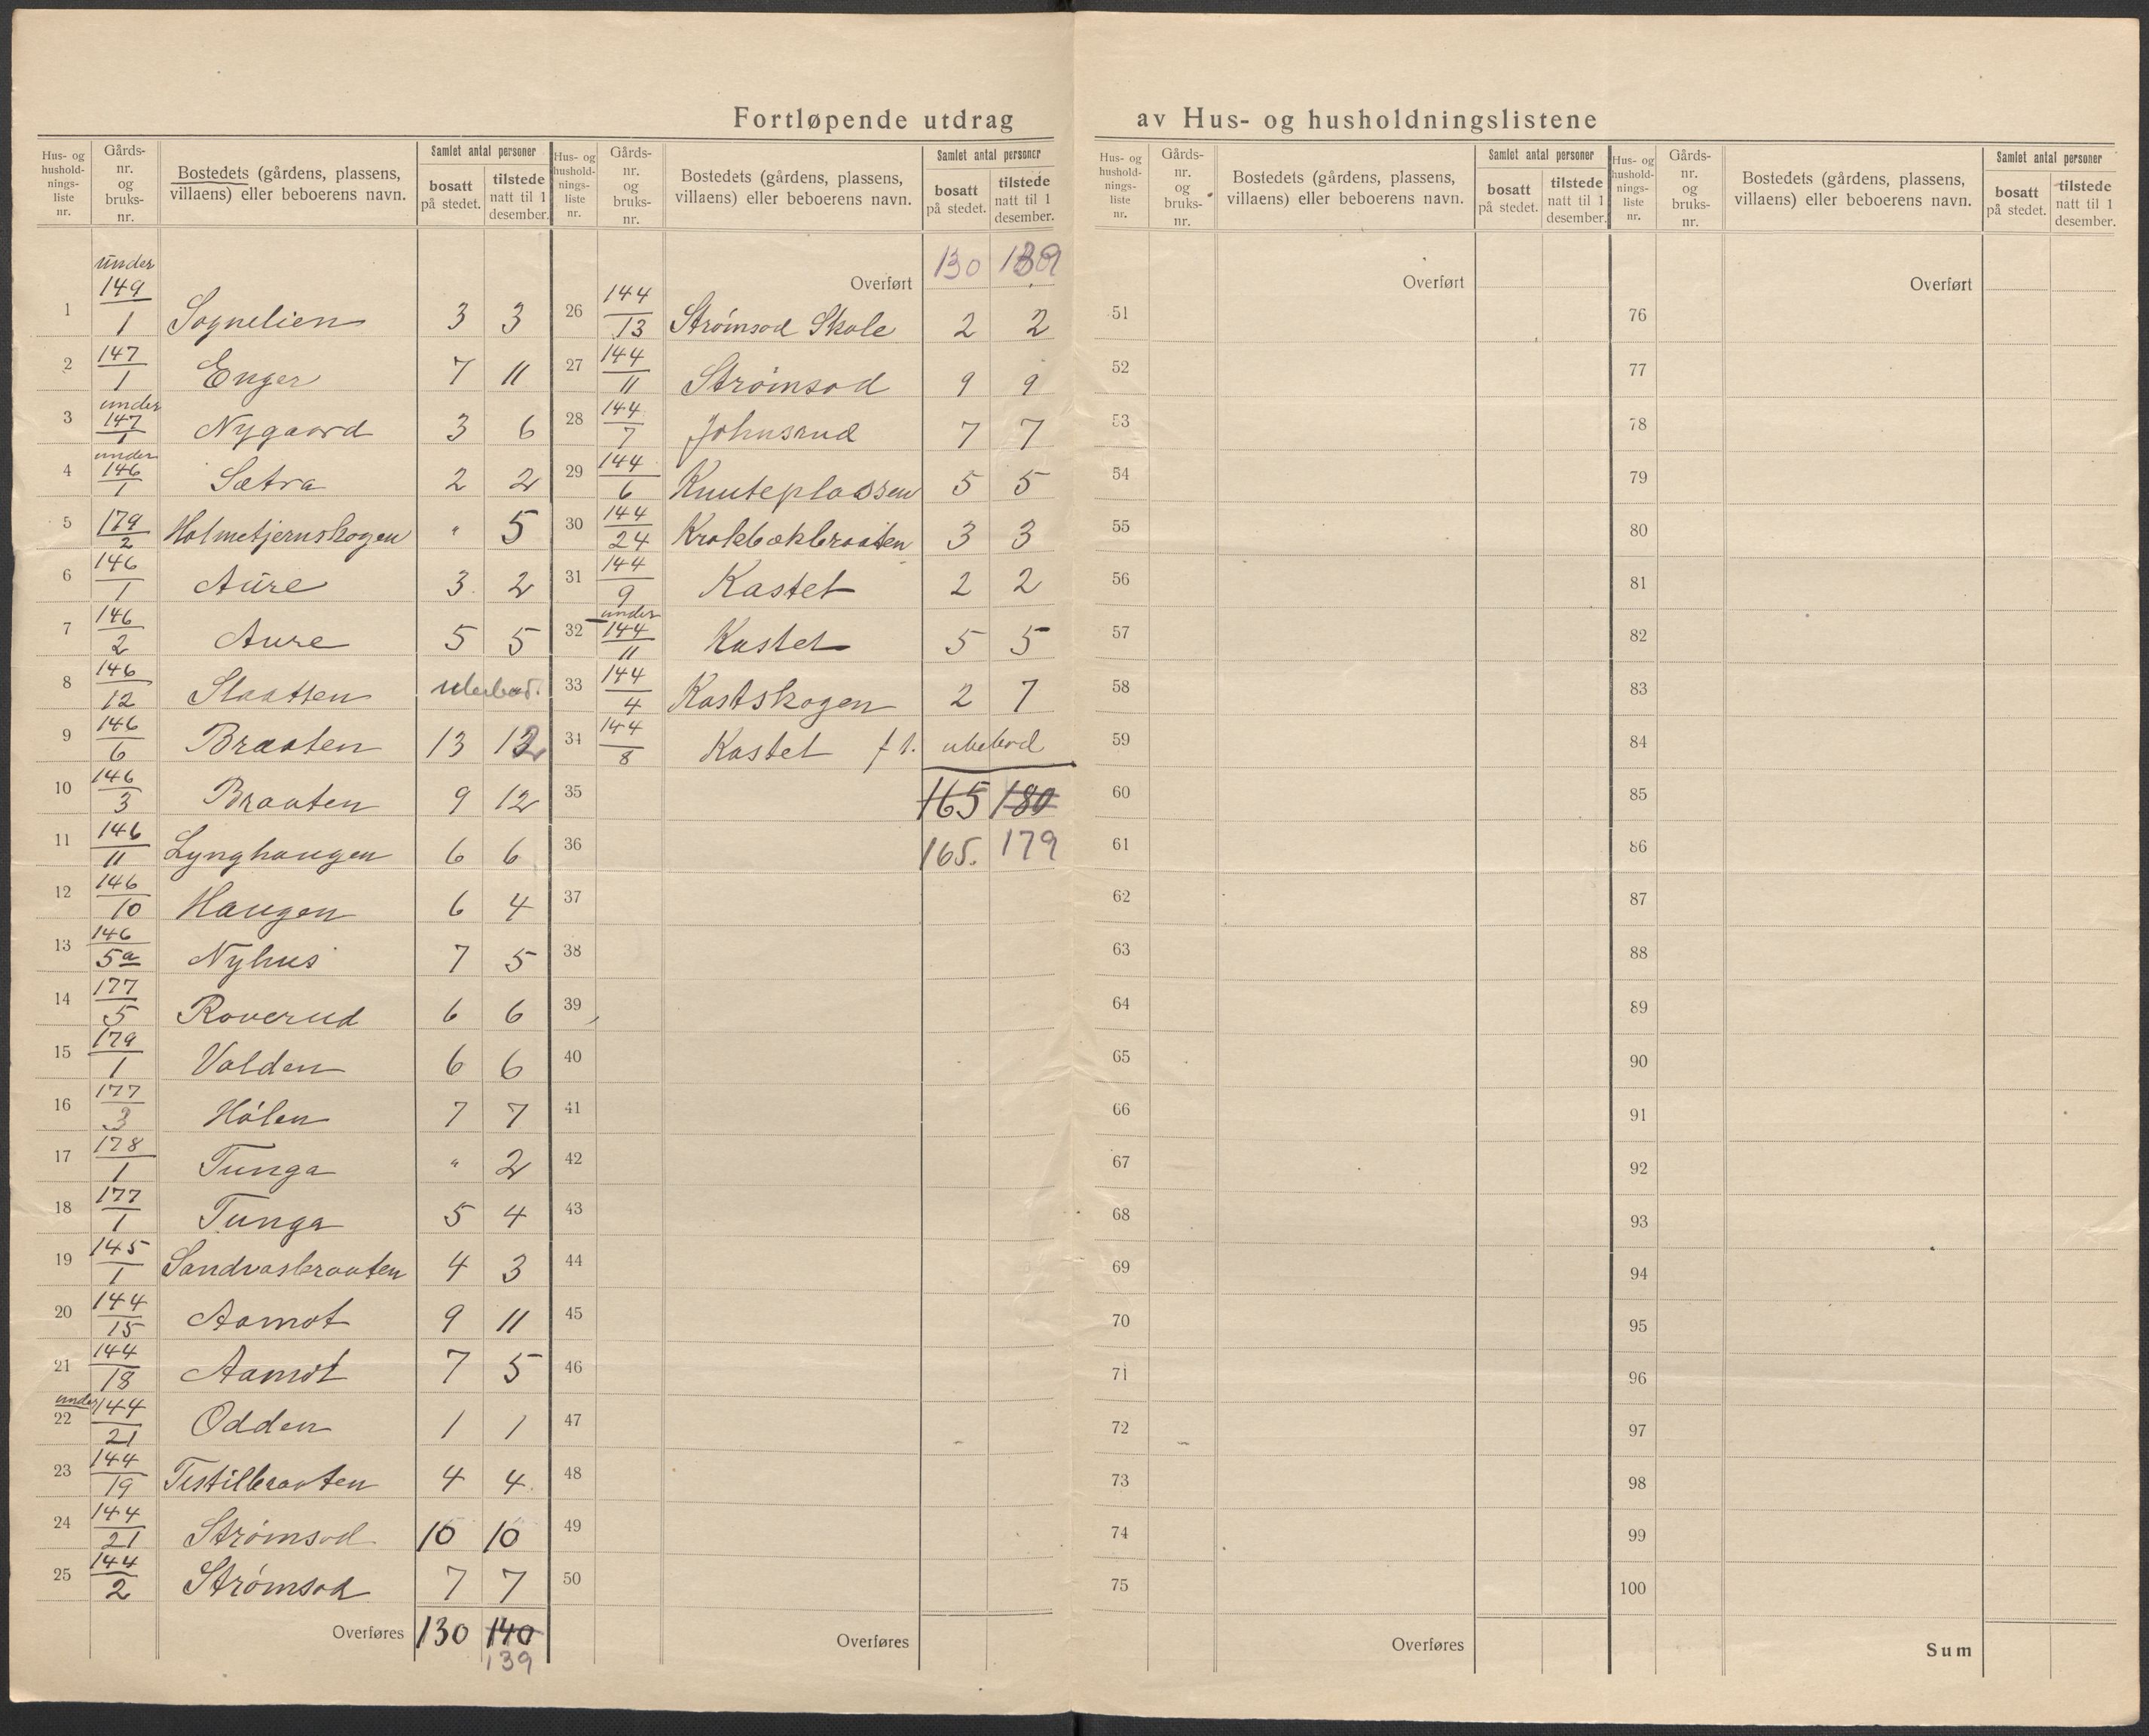 Fortløpende utdrag av Hus- og husholdningslistene
Hus- og hushold-nings-liste nr. Gårds-nr. og bruks-nr. Bostedets (gårdens, plassens, villaens) eller beboerens navn. Samlet antal personer bosatt på stedet. tilstede natt til 1 desember.
1 under 149/1 Sognelien 3 3
2 147/1 Enger 7 11
3 under 147/1 Nygaard 3 6
4 under 146/1 Sætra 2 2
5 179/2 Holmetjernskogen " 5
6 146/1 Aure 3 2
7 146/2 Aure 5 5
8 146/12 Slaatten ubebod.
9 146/6 Braaten 13 12
10 146/3 Braaten 9 12
11 146/11 Lynghaugen 6 6
12 146/10 Haugen 6 4
13 146/5a Nyhus 7 5
14 177/5 Roverud 6 6
15 179/1 Valden 6 6
16 177/3 Hólen 7 7
17 178/1 Tunga " 2
18 177/1 Tunga 5 4
19 145/1 Sandvasbraaten 4 3
20 144/15 Aamot 9 11
21 144/18 Aamot 7 5
22 under 144/21 Odden 1 1
23 144/19 Tistilbraaten 4 4
24 144/21 Strømsod 10 10
25 144/2 Strømsod 7 7
Overføres 130 140
139
Hus- og hushold-nings-liste nr. Gårds-nr. og bruks-nr. Bostedets (gårdens, plassens, villaens) eller beboerens navn. Samlet antal personer bosatt på stedet. tilstede natt til 1 desember.
Overført 130 139
26 144/13 Strømsod Skole 2 2
27 144/11 Strømsod 9 9
28 144/7 Johnsrud 7 7
29 144/6 Knuteplassen 5 5
30 144/24 Krokbækbraaten 3 3
31 144/9 Kastet 2 2
32 under 144/11 Kastet 5 5
33 144/4 Kastskogen 2 7
34 144/8 Kastet f t. ubebod
35 165 180
36 165. 179
37
38
39
40
41
42
43
44
45
46
47
48
49
50
Overføres
Hus- og hushold-nings-liste nr. Gårds-nr. og bruks-nr. Bostedets (gårdens, plassens, villaens) eller beboerens navn. Samlet antal personer bosatt på stedet. tilstede natt til 1 desember.
Overført
51
52
53
54
55
56
57
58
59
60
61
62
63
64
65
66
67
68
69
70
71
72
73
74
75
Overføres
Hus- og hushold-nings-liste nr. Gårds-nr. og bruks-nr. Bostedets (gårdens, plassens, villaens) eller beboerens navn. Samlet antal personer bosatt på stedet. tilstede natt til 1 desember.
Overført
76
77
78
79
80
81
82
83
84
85
86
87
88
89
90
91
92
93
94
95
96
97
98
99
100
Sum